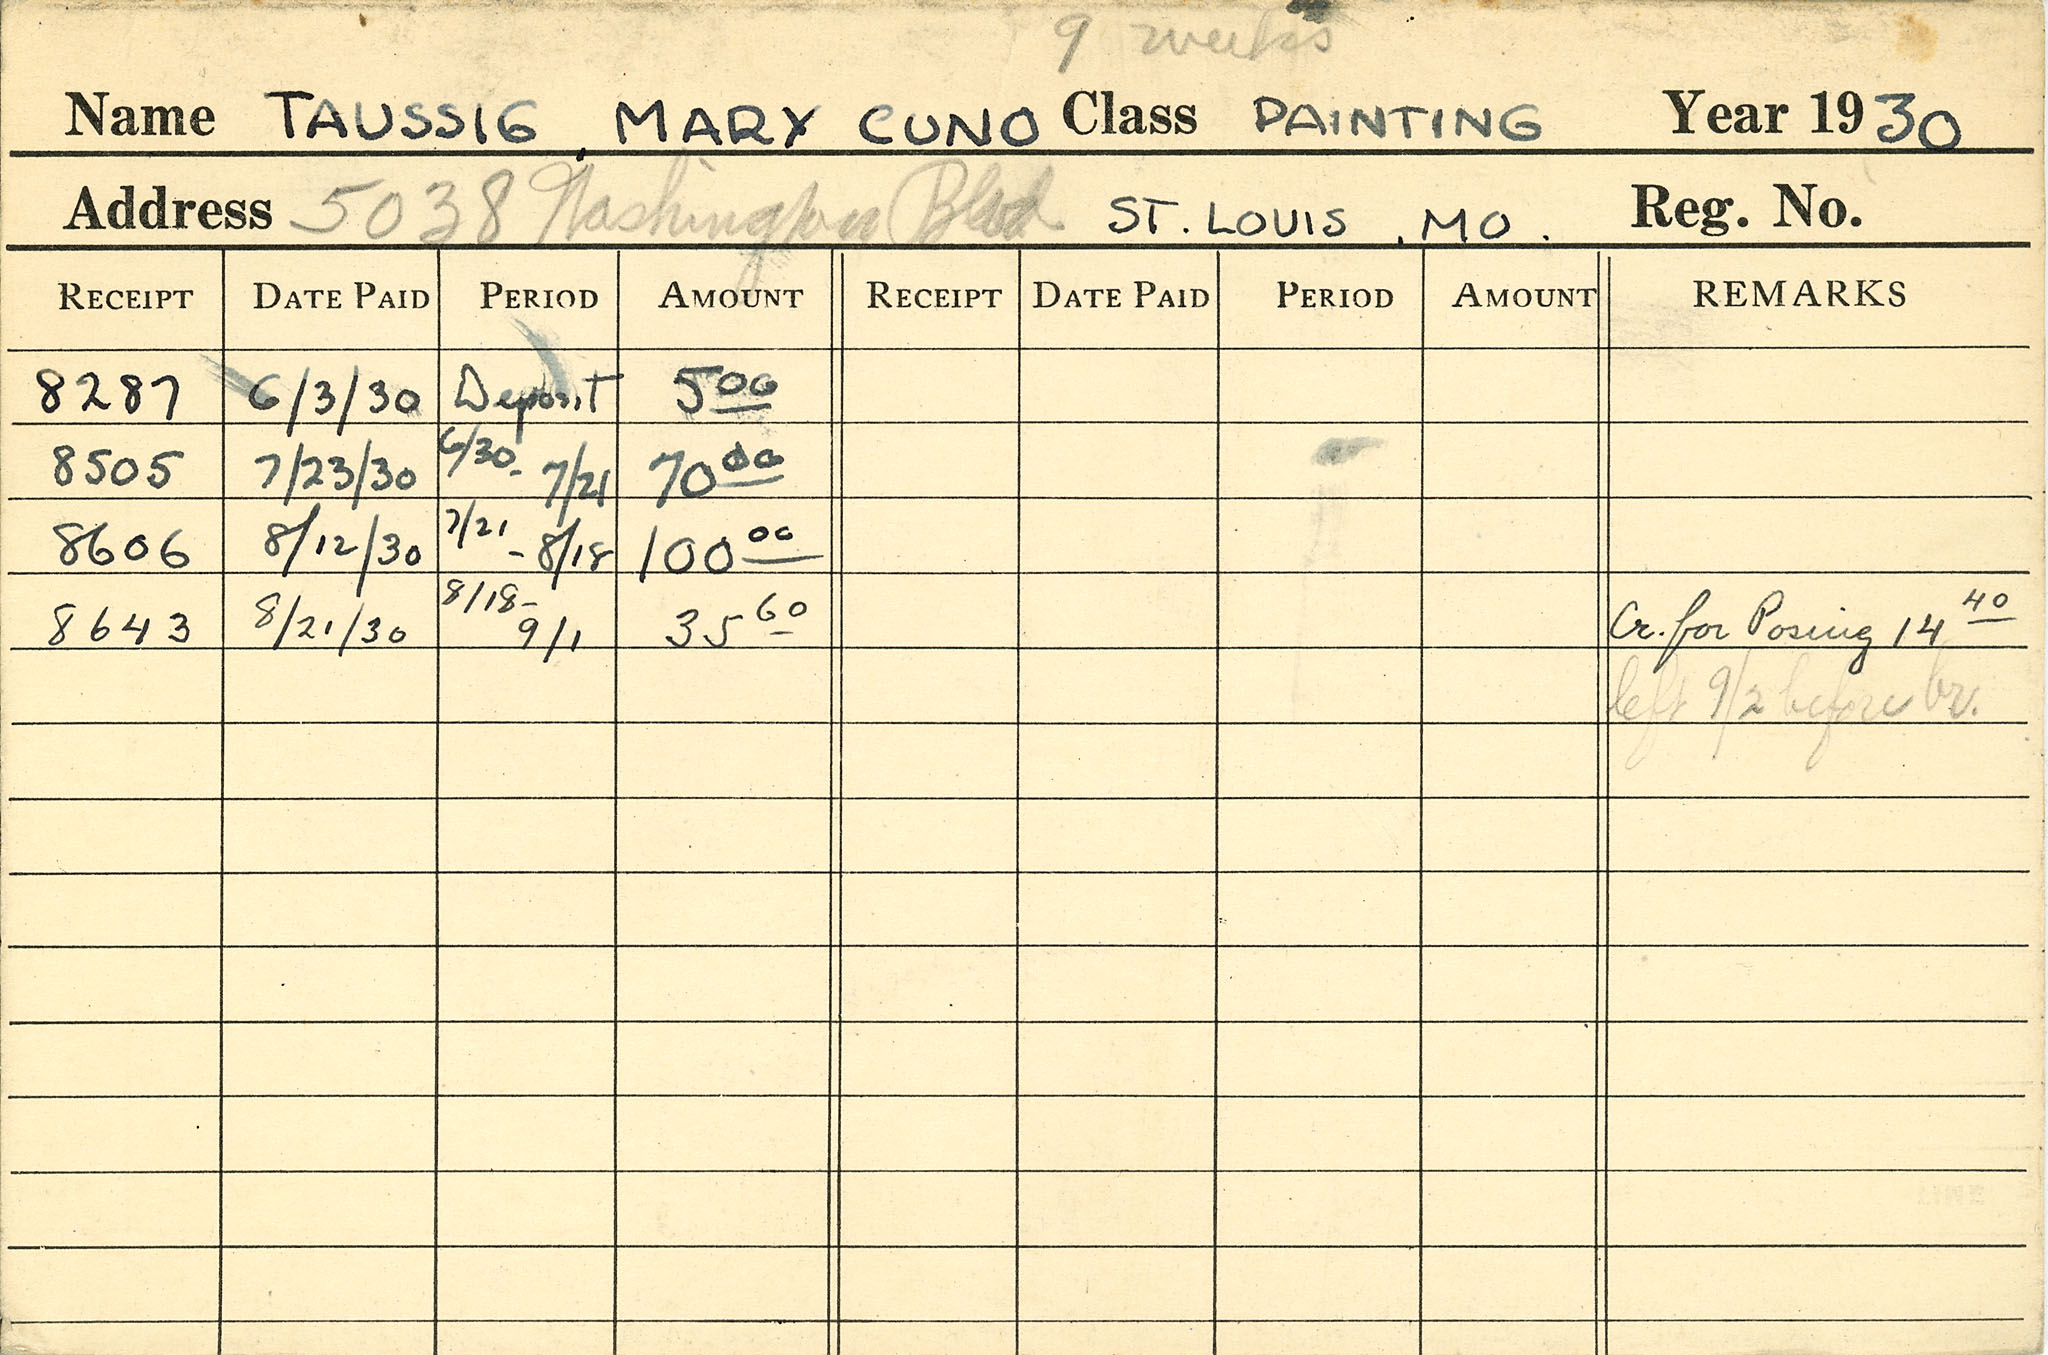 9 weeks
Name TAUSSIG, MARY CUNO Class PAINTING Year 1930
Address 5038 Washington Blvd ST. LOUIS, MO. Reg. No.
RECEIPT DATE PAID PERIOD AMOUNT RECEIPT DATE PAID PERIOD AMOUNT REMARKS
8287 6/3/30 Deposit 5 00
8505 7/23/30 6/30- 7/21 70 00
8606 8/12/30 7/21 - 8/18 100 00
8643 8/21/30 8/18- 9/1 35 60 Cr. for Posing 14 40
left 9/2 before br.